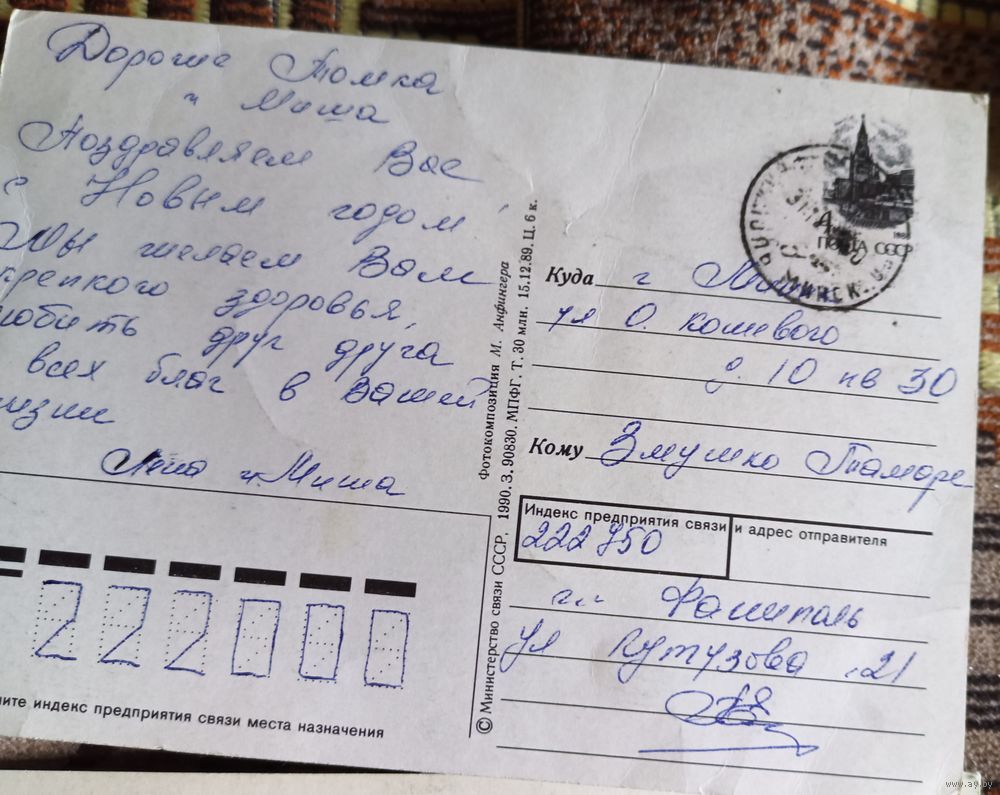 Дорогие Томка
и Миша
Поздравляем Вас
с Новым годом!
Мы желаем Вам
крепкого здоровья,
любить друг друга
всех благ в Вашей
жизни
Лена и Миша
222000
ите индекс предприятия связи места назначения
© Министерство связи СССР, 1990. З. 90830. МПФГ. Т. 30 млн. 15.12.89. Ц. 6 к.
Фотокомпозиция М. Анфингера
4
ПОЧТА СССР
МИНСК
Куда г
ул О. Кошевого
д. 10 кв 30
Кому Змушко Тамаре
Индекс предприятия связи и адрес отправителя
222750
г. Фаниполь
ул Кутузова 21
www.ay.by